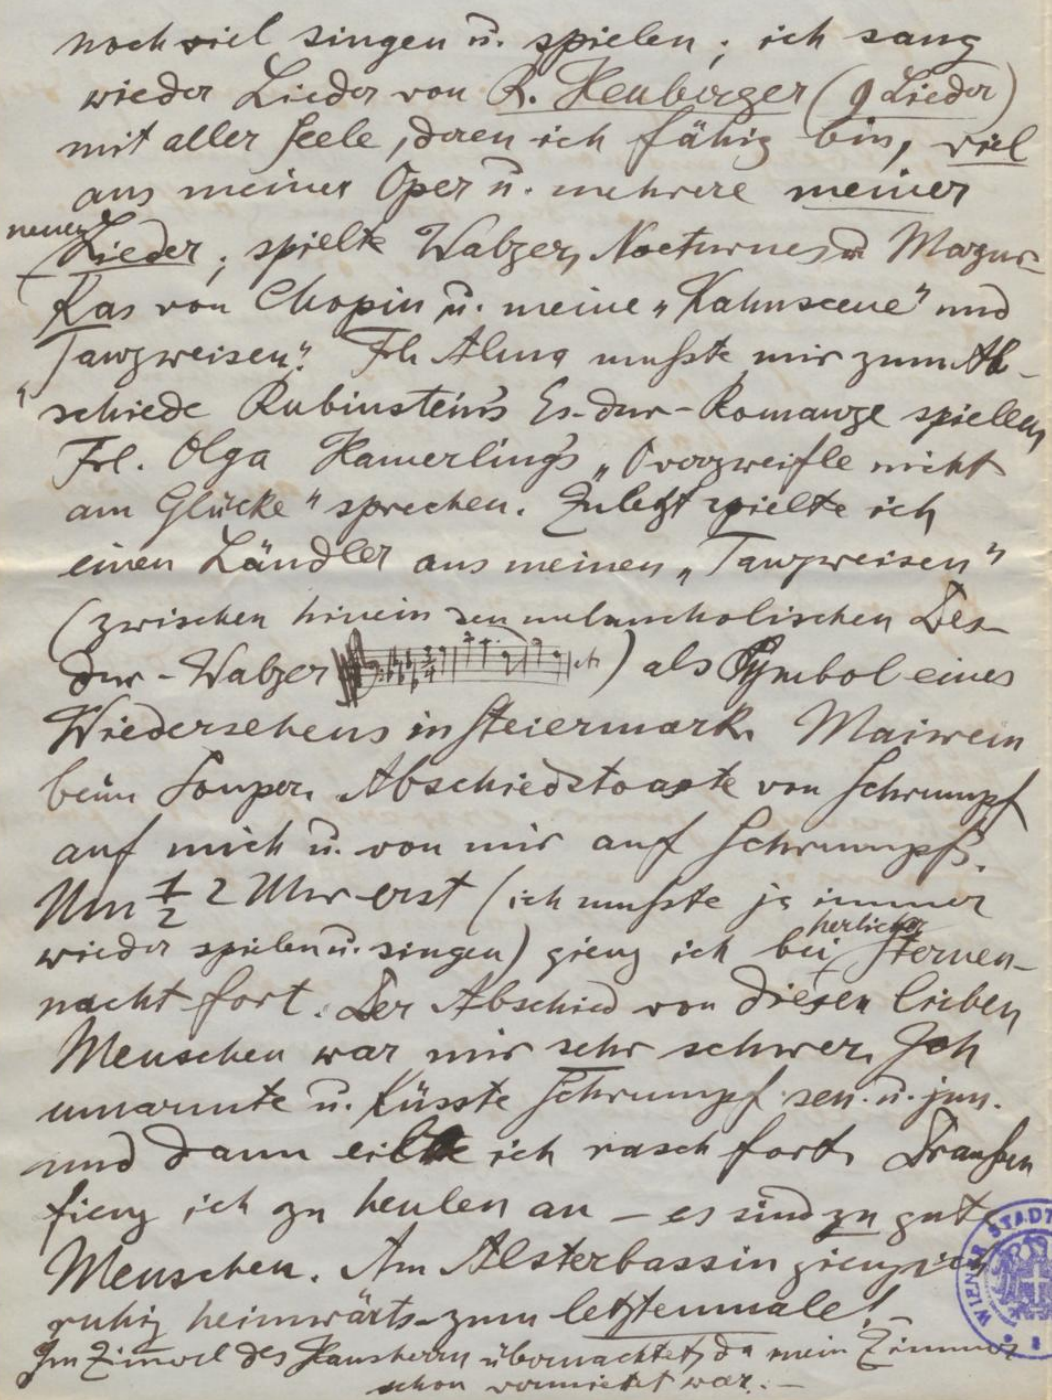 noch viel singen u. spielen; ich sang
wieder Lieder von R. Heuberger (9 Lieder)
mit aller Seele, deren ich fähig bin, viel
aus meiner Oper u. mehrere meiner
neuen
Lieder; spielte Walzer, Nocturnes u Mazur-
kas von Chopin u. meine „Kahnscene" und
„Tanzweisen". Frl. Alma musste mir zum Ab-
schiede Rubinstein's Es-dur-Romanze spielen,
Frl. Olga Hamerling's „O verzweifle nicht
am Glücke" sprechen. Zuletzt spielte ich
einen Ländler aus meinen „Tanzweisen"
(zwischen hinein den melancholischen Des-
dur-Walzer etc) als Symbol eines
Wiedersehens in Steiermark. Maiwein
beim Souper. Abschiedstoaste von Schrumpf
auf mich u. von mir auf Schrumpfs.
Um 1/2 2 Uhr erst (ich musste ja immer
herlicher
wieder spielen u. singen) gieng ich bei Sternen-
nacht fort. Der Abschied von diesen lieben
Menschen war mir sehr schwer. Ich
umarmte u. küsste Schrumpf sen. u. jun.
und dann eilte ich rasch fort. Draußen
fieng ich zu heulen an – es sind zu gute
Menschen. Am Alsterbassin gieng ich
ruhig heimwärts – zum letztenmale! –
Im Zimmer des Hausherrn übernachtet, da mein Zimmer
schon vermietet war. –
WIENER STADT